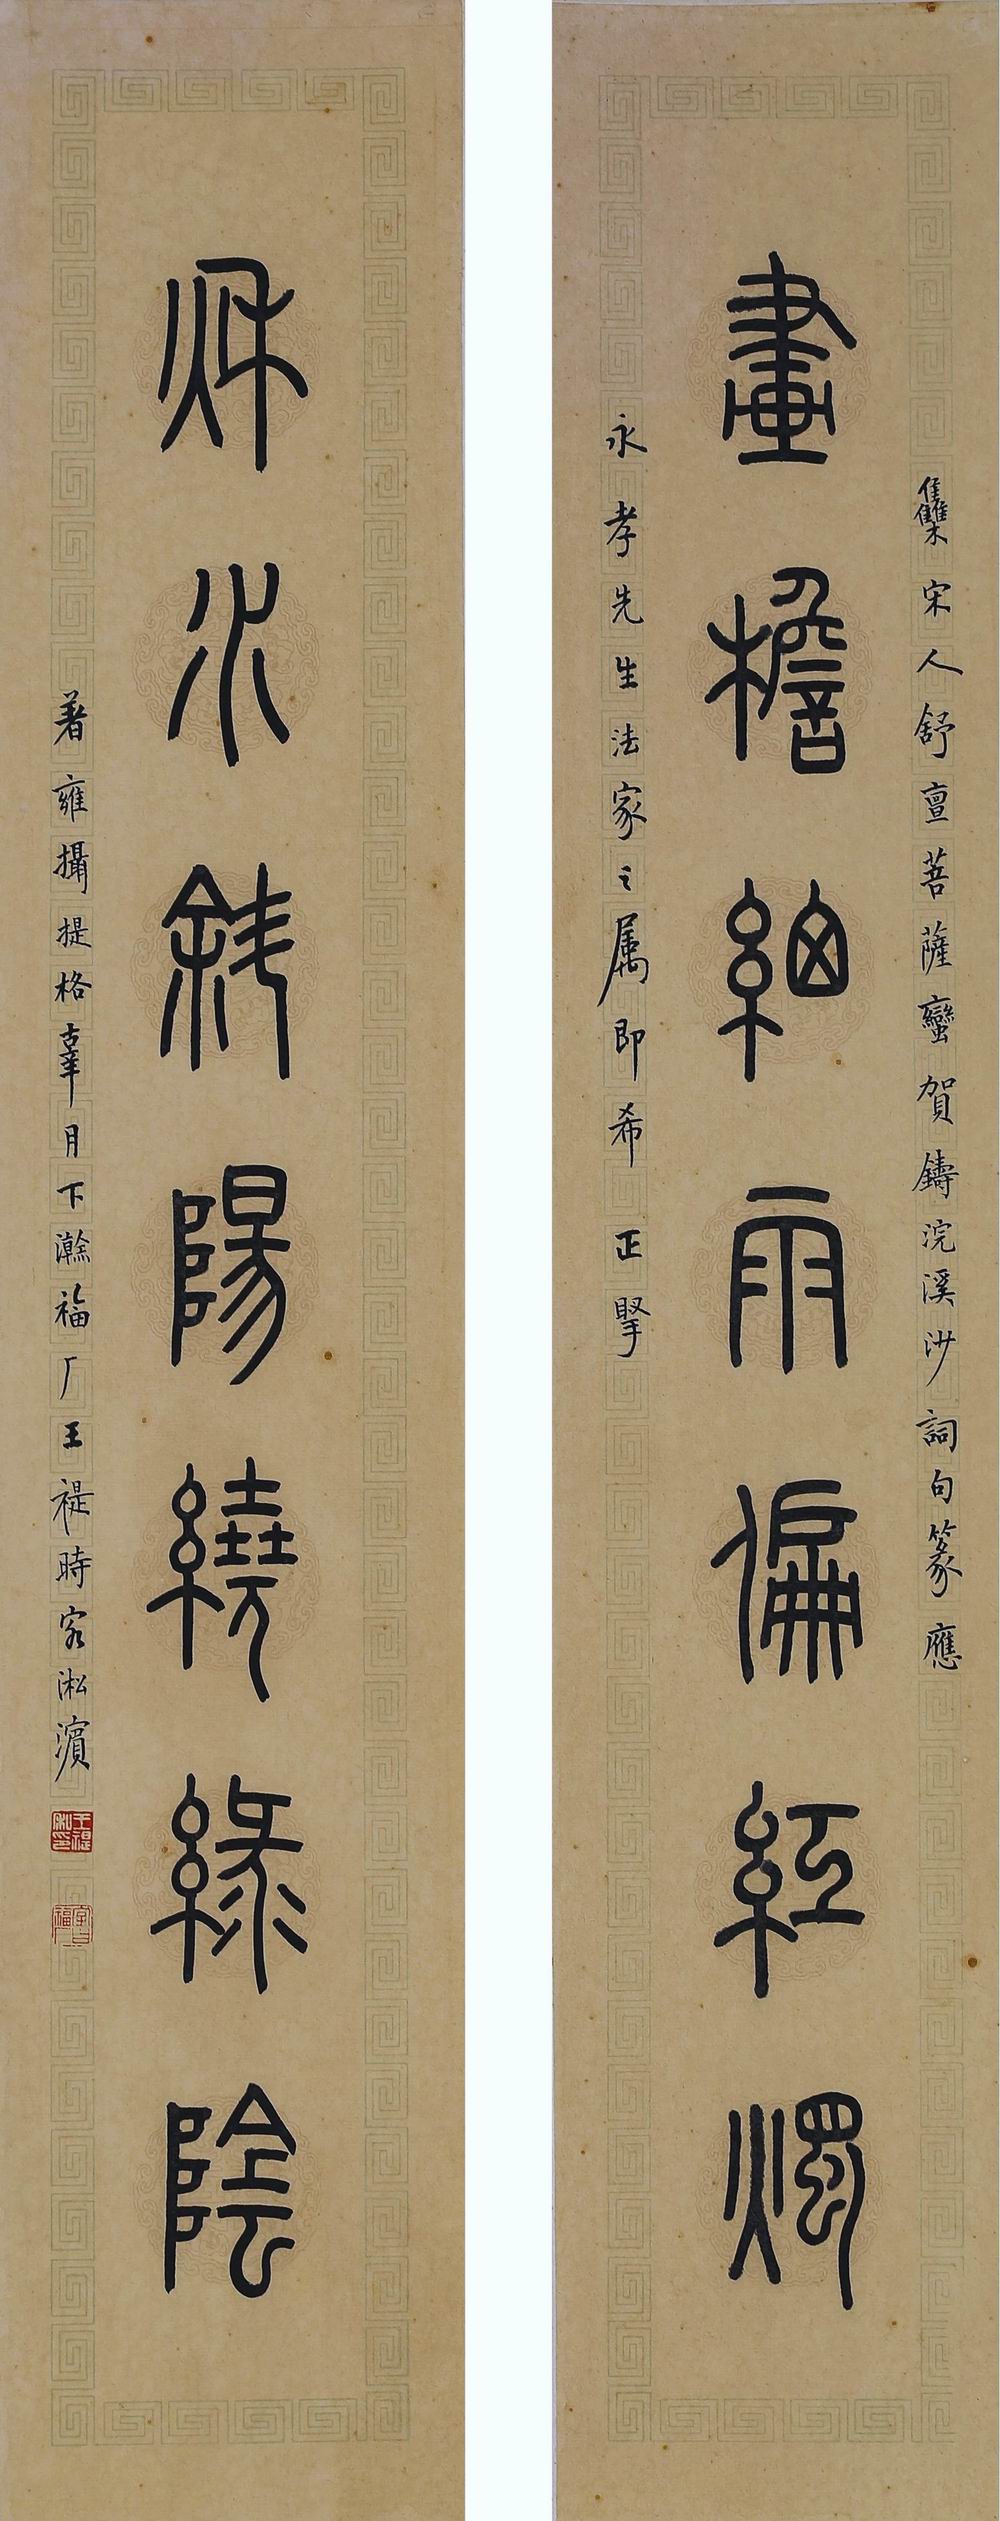 雧宋人舒亶菩薩蠻賀鑄浣溪沙詞句篆應
畫檐細雨偏紅燭
永孝先生法家之属即希正掔
秋水斜陽繞綠陰
著雍攝提格辜月下澣福厂王禔時客淞濱
王禔私印
字曰福厂